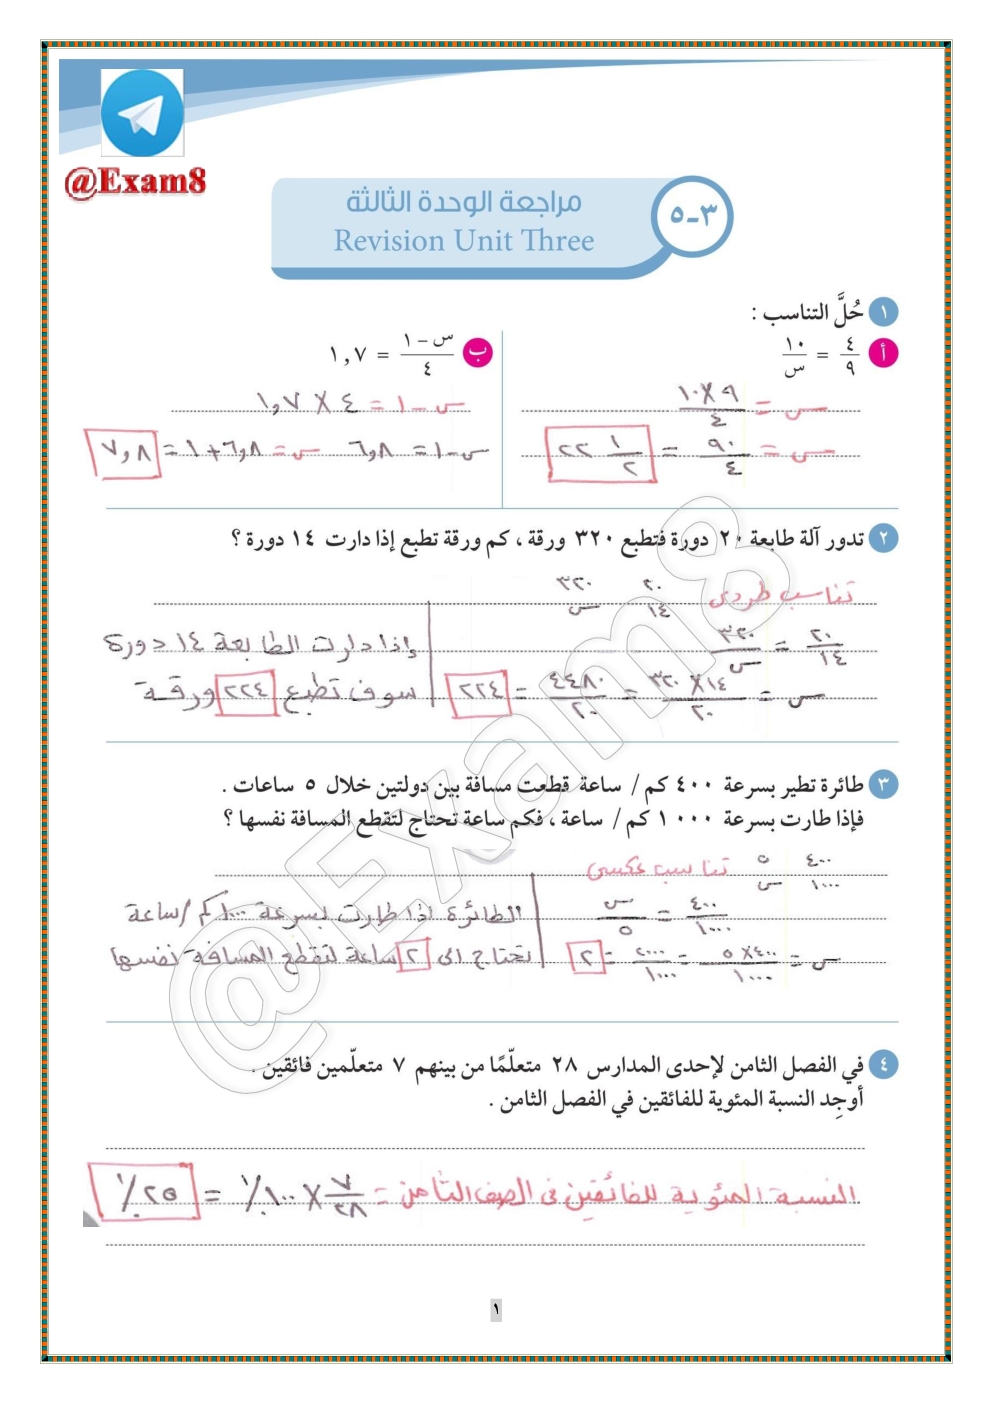 @Exam8
٣-٥
مراجعة الوحدة الثالثة
Revision Unit Three
١ حُلَّ التناسب :
أ ٤/٩ = ١٠/س
س = ٩ × ١٠ / ٤
س = ٩٠/٤ = ٢٢ ١/٢
ب س - ١ / ٤ = ١,٧
س - ١ = ٤ × ١,٧
س - ١ = ٦,٨ س = ٦,٨ + ١ = ٧,٨
٢ تدور آلة طابعة ٢٠ دورة فتطبع ٣٢٠ ورقة ، كم ورقة تطبع إذا دارت ١٤ دورة ؟
تناسب طردى ٢٠ ٣٢٠
١٤ س
٢٠/١٤ = ٣٢٠/س
س = ١٤ × ٣٢٠ / ٢٠ = ٤٤٨٠/٢٠ = ٢٢٤
إذا دارت الطابعة ١٤ دورة
سوف تطبع ٢٢٤ ورقة
٣ طائرة تطير بسرعة ٤٠٠ كم / ساعة قطعت مسافة بين دولتين خلال ٥ ساعات .
فإذا طارت بسرعة ١٠٠٠ كم / ساعة ، فكم ساعة تحتاج لتقطع المسافة نفسها ؟
٤٠٠ ٥ تناسب عكسى
١٠٠٠ س
٤٠٠/١٠٠٠ = س/٥
س = ٤٠٠ × ٥ / ١٠٠٠ = ٢٠٠٠/١٠٠٠ = ٢
الطائرة اذا طارت بسرعة ١٠٠٠ كم/ساعة
تحتاج الى ٢ ساعة لتقطع المسافة نفسها
٤ في الفصل الثامن لإحدى المدارس ٢٨ متعلّمًا من بينهم ٧ متعلّمين فائقين .
أوجِد النسبة المئوية للفائقين في الفصل الثامن .
النسبة المئوية للفائقين فى الصف الثامن = ٧/٢٨ × ١٠٠٪ = ٢٥٪
١
@Exam8